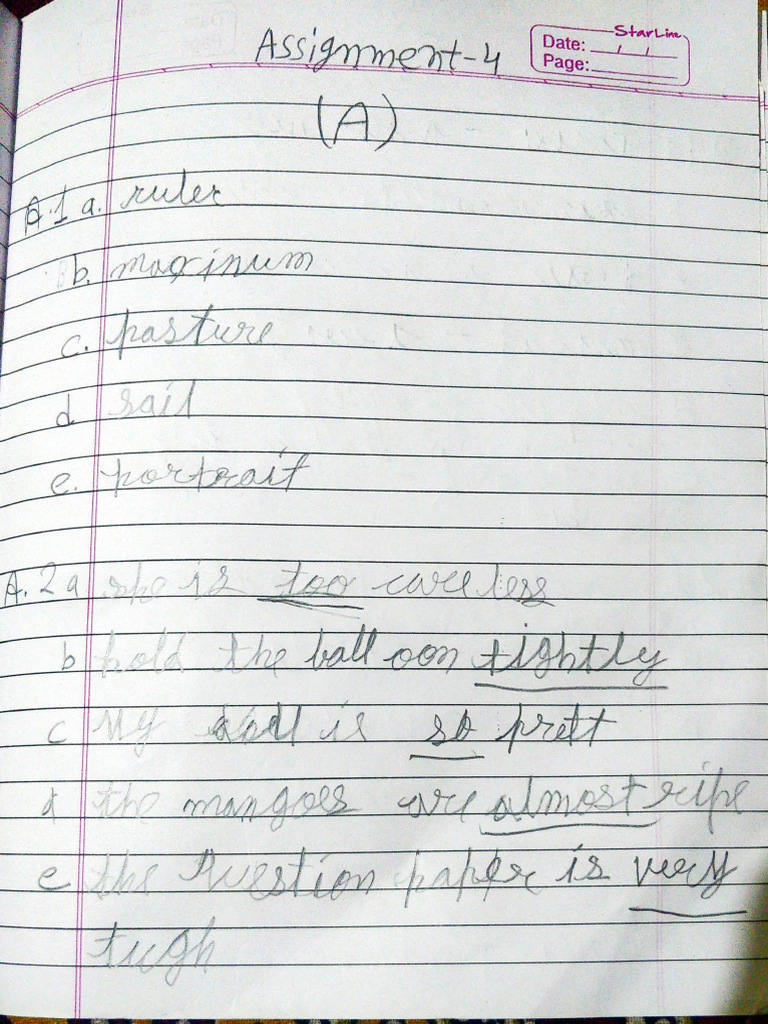 Assignment-4
StarLine
Date: / /
Page:
(A)
A.1 a. ruler
b. maxinum
c. pasture
d sail
e. portrait
A.2 a she is too careless
b hold the balloon tightly
c My doll is so prett
d the mangoes are almost ripe
e the Question paper is very
tugh